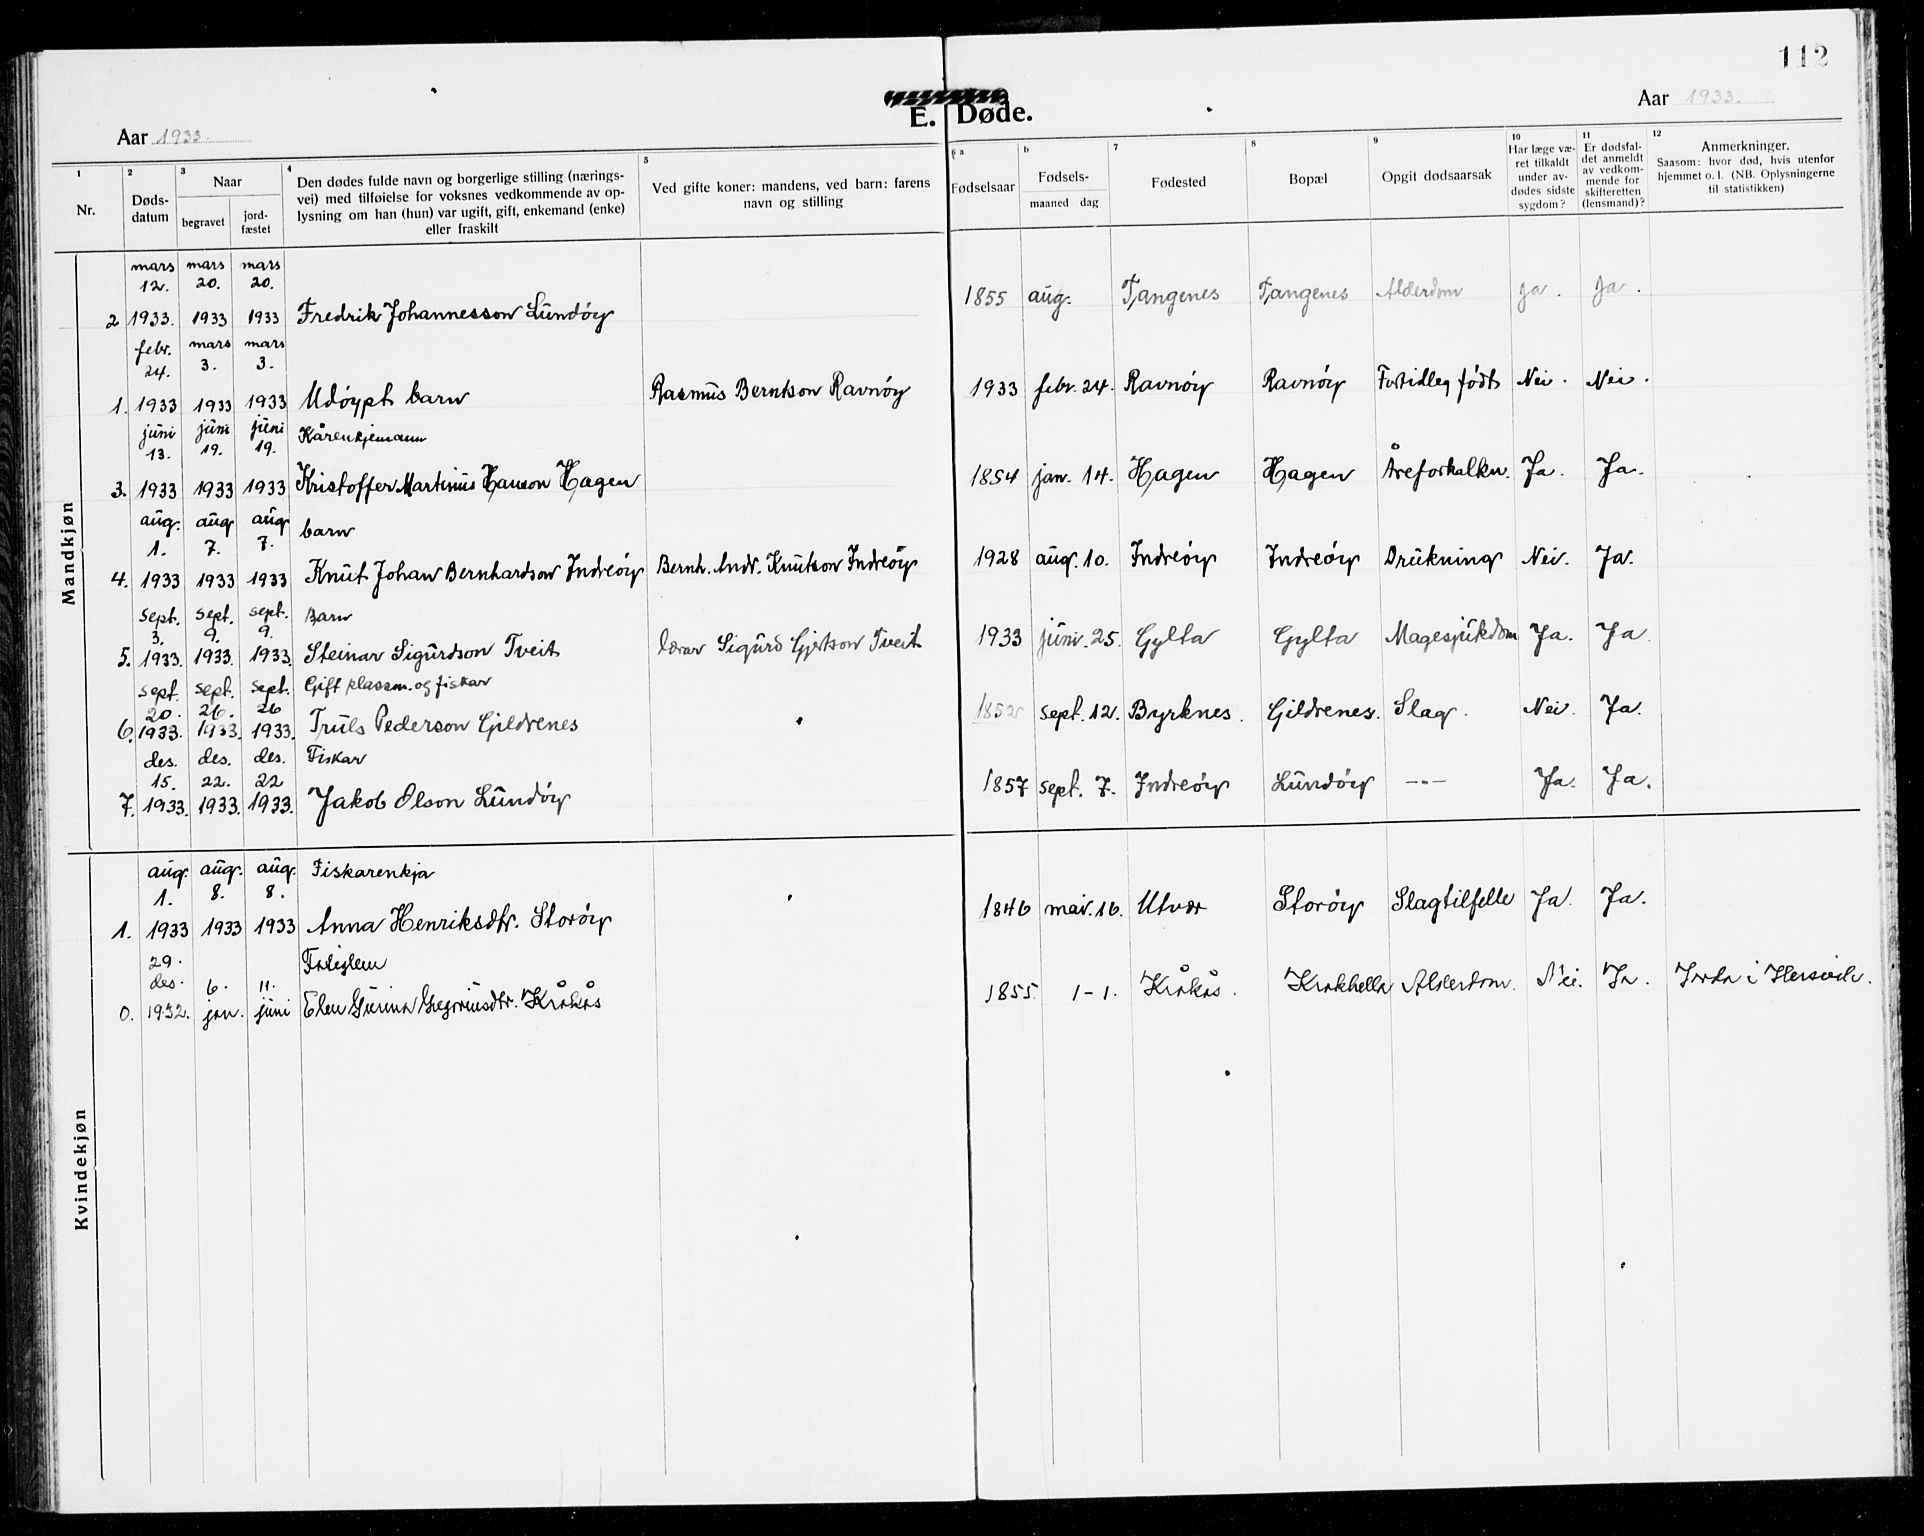 112
E. Døde.
Aar 1933.
Aar 1933.
1
Nr.
2
Døds-
datum
3
Naar
begravet
jord-
fæstet
4
Den dødes fulde navn og borgerlige stilling (nærings-
vei) med tilføielse for voksnes vedkommende av op-
lysning om han (hun) var ugift, gift, enkemand (enke)
eller fraskilt
5
Ved gifte koner: mandens, ved barn: farens
navn og stilling
6 a
Fødselsaar
b
Fødsels-
maaned dag
7
Fødested
8
Bopæl
9
Opgit dødsaarsak
10
Har læge væ-
ret tilkaldt
under av-
dødes sidste
sygdom?
11
Er dødsfal-
det anmeldt
av vedkom-
mende for
skifteretten
(lensmand)?
12
Anmerkninger.
Saasom: hvor død, hvis utenfor
hjemmet o. l. (NB. Oplysningerne
til statistikken)
Mandkjøn
mars mars mars
12. 20. 20.
2 1933. 1933 1933 Fredrik Johannesson Lundöy 1855 aug. Tangenes Tangenes Alderdom Ja. Ja.
febr. mars mars
24. 3. 3.
1. 1933 1933 1933 Udöypt barn Rasmus Berntson Ravnöy 1933 febr. 24. Ravnöy Ravnöy Fortidleg födt Nei. Nei.
juni juni juni Kårenkjemann
13. 19. 19.
3. 1933 1933 1933 Kristoffer Martinus Hanson Hagen 1854 jan. 14. Hagen Hagen Åreforkalkn. Ja. Ja.
aug. aug aug barn
1. 7. 7.
4. 1933 1933 1933 Knut Johan Bernhardson Indreöy Bernh. Andr. Knutson Indreöy 1928 aug. 10. Indreöy Indreöy Drukning Nei. Ja.
sept. sept. sept. Barn
3. 9. 9.
5. 1933. 1933. 1933. Steinar Sigurdson Tveit lærar Sigurd Gjertson Tveit 1933 juni 25. Gylta Gylta Magesjukdom Ja. Ja.
sept. sept. sept. Gift plassm. og fiskar
20. 26. 26
6. 1933. 1933. 1933. Truls Pederson Gildrenes 1852 sept. 12. Byrknes. Gildrenes. Slag. Nei. Ja.
des. des. des. Fiskar
15. 22. 22
7. 1933. 1933. 1933. Jakob Olson Lundöy 1857 sept. 7. Indreöy Lundöy -"- Ja. Ja.
Kvindekjøn
aug. aug. aug. Fiskarenkja
1. 8. 8.
1. 1933 1933 1933 Anna Henriksdtr. Storöy 1846 mai. 16. Utvær Storöy Slagtilfelle Ja. Ja.
29.
des. 6. 11.
0. 1932. jan. juni Elen Gurina Gregoriusdtr. Kråkås 1855 1-1. Kråkås. Krakhella Alderdom. Nei. Ja. Jorda i